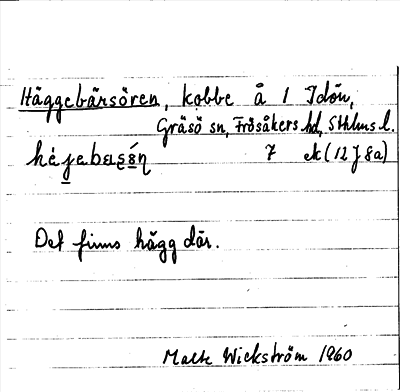 Häggebärsören, kobbe å 1 Idön,
Gräsö sn, Frösåkers hd, Sthlms l.
7 ek (12 J 8a)
Det finns hägg där.
Malte Wickström 1960